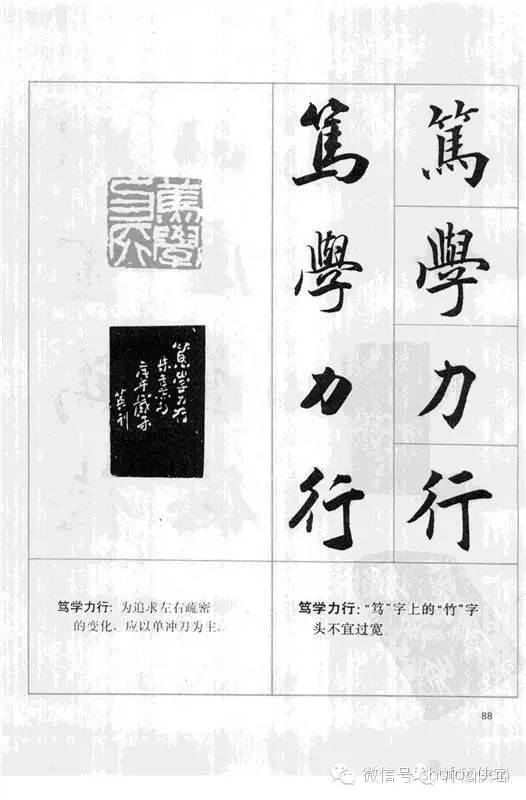 篤學力行
篤學力行
篤學力行
篤學力行
笃学力行：为追求左右疏密
的变化，应以单冲刀为主。
笃学力行：“笃”字上的“竹”字
头不宜过宽
88
微信号